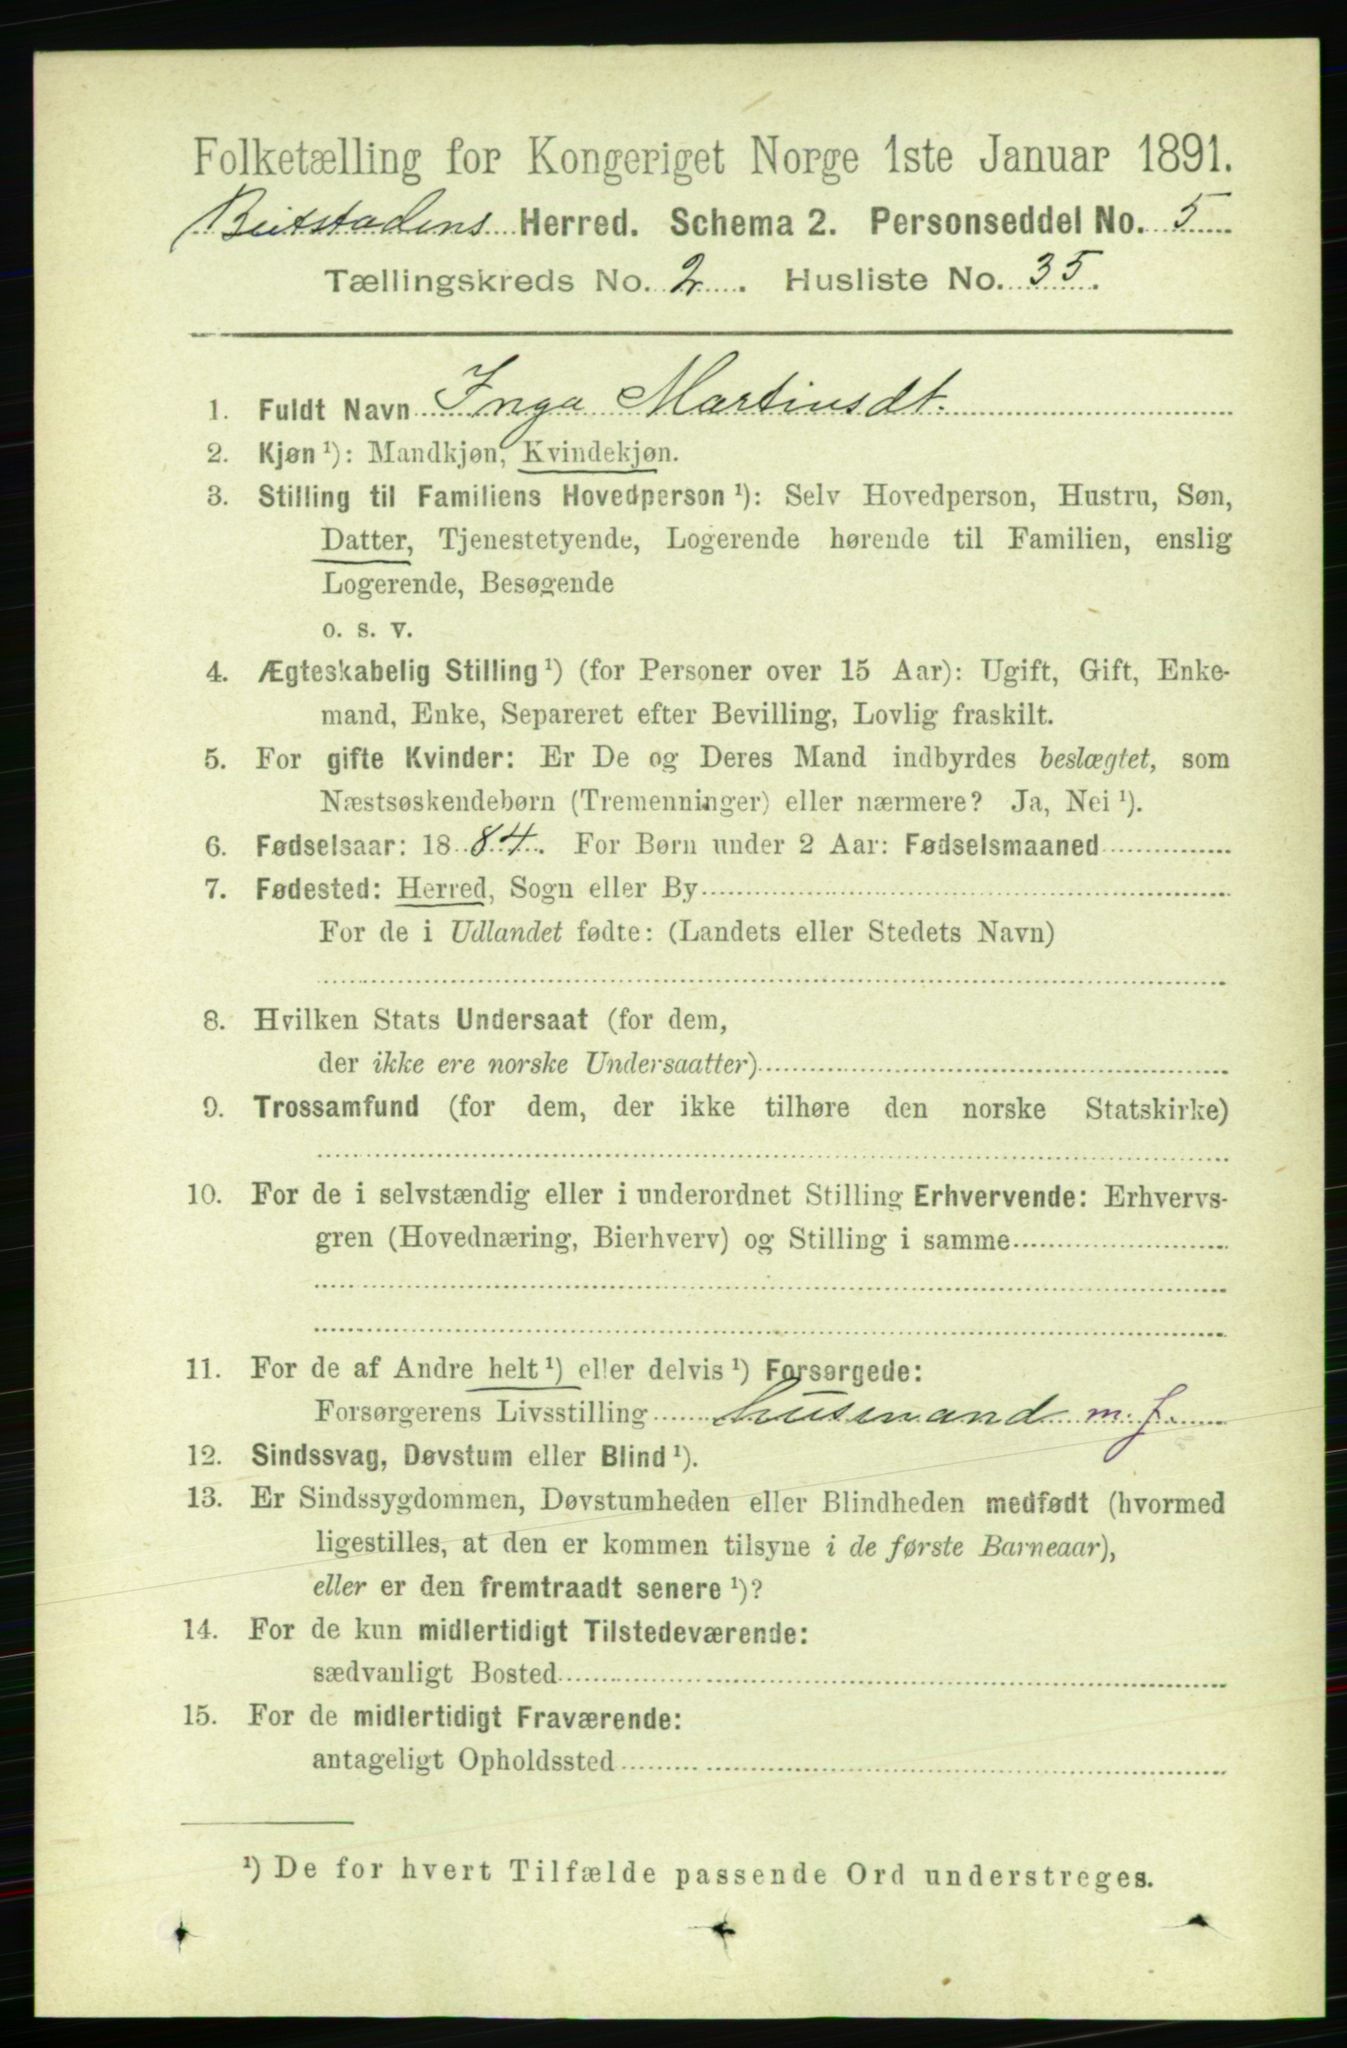 Folketælling for Kongeriget Norge 1ste Januar 1891.
Beitstadens Herred. Schema 2. Personseddel No. 5
Tællingskreds No. 2. Husliste No. 35.
1. Fuldt Navn Inga Martinsdt.
2. Kjøn ¹): Mandkjøn, Kvindekjøn.
3. Stilling til Familiens Hovedperson ¹): Selv Hovedperson, Hustru, Søn,
Datter, Tjenestetyende, Logerende hørende til Familien, enslig
Logerende, Besøgende
o. s. v.
4. Ægteskabelig Stilling ¹) (for Personer over 15 Aar): Ugift, Gift, Enke-
mand, Enke, Separeret efter Bevilling, Lovlig fraskilt.
5. For gifte Kvinder: Er De og Deres Mand indbyrdes beslægtet, som
Næstsøskendebørn (Tremenninger) eller nærmere? Ja, Nei ¹).
6. Fødselsaar: 1884. For Børn under 2 Aar: Fødselsmaaned
7. Fødested: Herred, Sogn eller By
For de i Udlandet fødte: (Landets eller Stedets Navn)
8. Hvilken Stats Undersaat (for dem,
der ikke ere norske Undersaatter)
9. Trossamfund (for dem, der ikke tilhøre den norske Statskirke)
10. For de i selvstændig eller i underordnet Stilling Erhvervende: Erhvervs-
gren (Hovednæring, Bierhverv) og Stilling i samme
11. For de af Andre helt ¹) eller delvis ¹) Forsørgede:
Forsørgerens Livsstilling husmand m. j.
12. Sindssvag, Døvstum eller Blind ¹).
13. Er Sindssygdommen, Døvstumheden eller Blindheden medfødt (hvormed
ligestilles, at den er kommen tilsyne i de første Barneaar),
eller er den fremtraadt senere ¹)?
14. For de kun midlertidigt Tilstedeværende:
sædvanligt Bosted
15. For de midlertidigt Fraværende:
antageligt Opholdssted
¹) De for hvert Tilfælde passende Ord understreges.